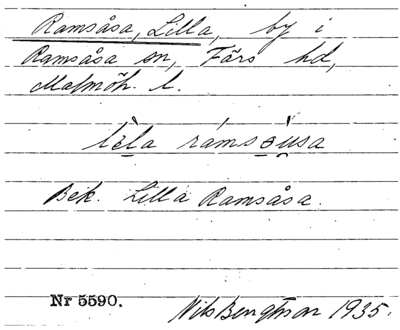 Ramsåsa, Lilla, by i
Ramsåsa sn, Färs hd,
Malmöh. l.
lèla ràmsòu̇sa
Bek. Lilla Ramsåsa.
Nr 5590.
Nils Bengtson 1935.